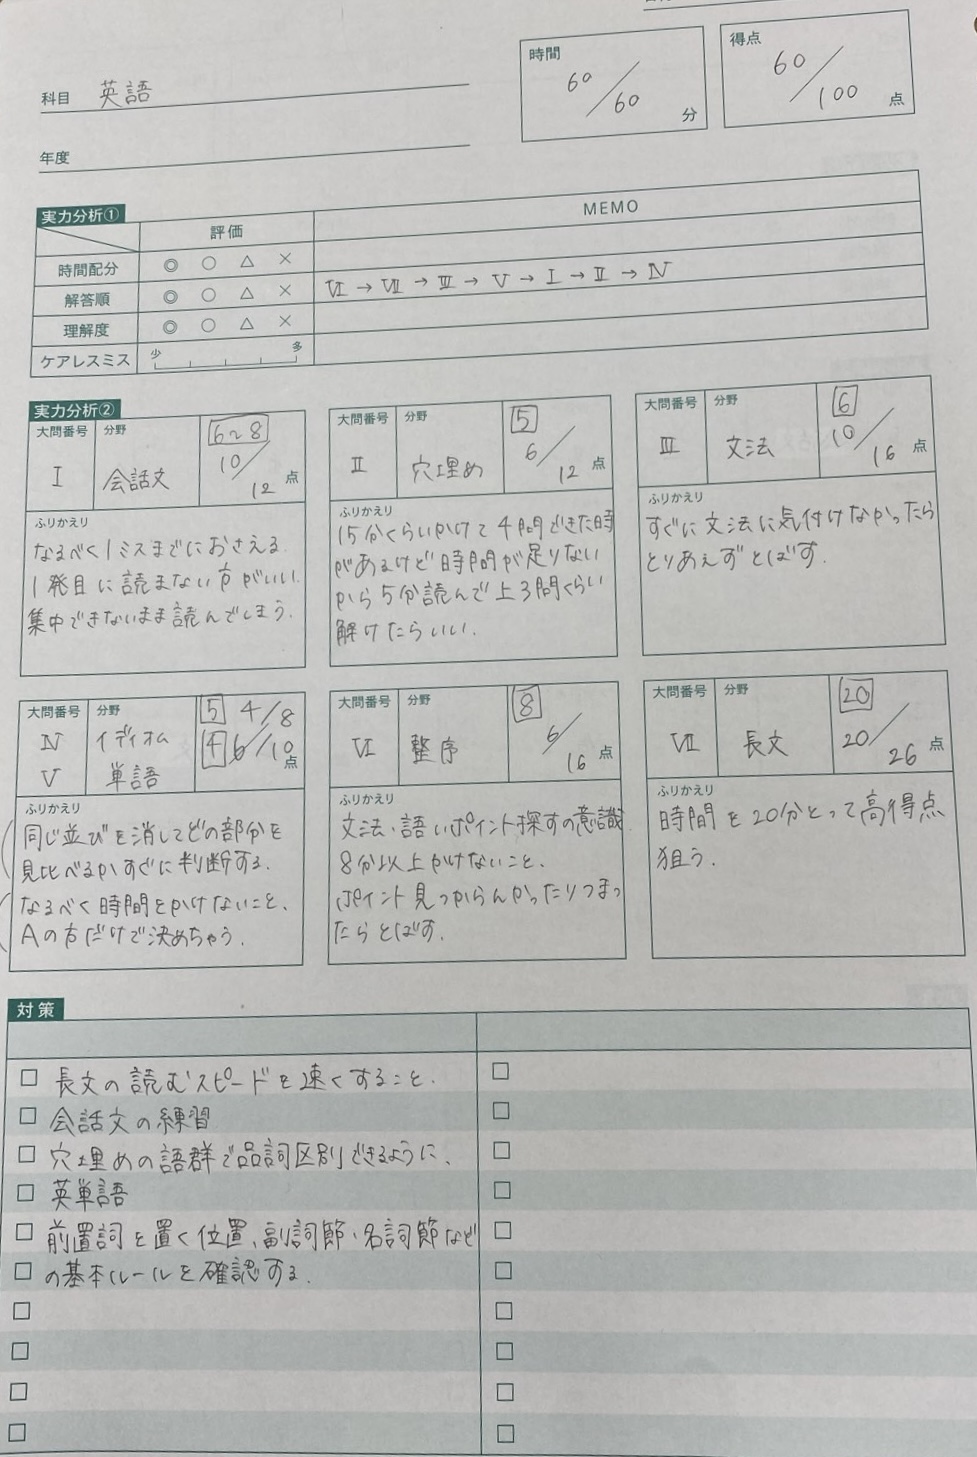 科目 英語
時間 60/60 分
得点 60/100 点
年度
実力分析①
評価 MEMO
時間配分 ◎ ○ △ ×
解答順 ◎ ○ △ × Ⅵ→Ⅶ→Ⅲ→Ⅴ→Ⅰ→Ⅱ→Ⅳ
理解度 ◎ ○ △ ×
ケアレスミス 少 多
実力分析②
大問番号 Ⅰ 分野 会話文 6~8 10/12 点
ふりかえり
なるべく1ミスまでにおさえる
1発目に読まない方がいい
集中できないまま読んでしまう.
大問番号 Ⅱ 分野 穴埋め 5 6/12 点
ふりかえり
15分くらいかけて4問できた時
があるけど時間が足りない
から5分読んで上3問くらい
解けたらいい.
大問番号 Ⅲ 分野 文法 6 10/16 点
ふりかえり
すぐに文法に気付けなかったら
とりあえずとばす.
大問番号 Ⅳ 分野 イディオム 5 4/8
Ⅴ 単語 4 6/10 点
ふりかえり
同じ並びを消してどの部分を
見比べるかすぐに判断する.
なるべく時間をかけないこと、
Aの方だけで決めちゃう.
大問番号 Ⅵ 分野 整序 8 6/16 点
ふりかえり
文法・語いポイント探すの意識
8分以上かけないこと、
ポイント見つからんかったりつまっ
たらとばす.
大問番号 Ⅶ 分野 長文 20 20/26 点
ふりかえり
時間を20分とって高得点
狙う.
対策
□ 長文の読むスピードを速くすること.
□ 会話文の練習
□ 穴埋めの語群で品詞区別できるように、
□ 英単語
□ 前置詞を置く位置、副詞節・名詞節など
□ の基本ルールを確認する.